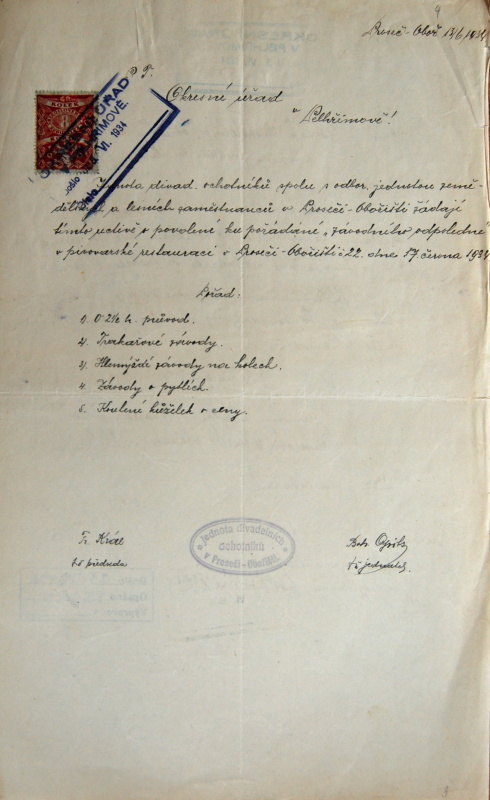 Proseč-Oboř. 13/6 1934
P. T.
Okresní úřad
v Pelhřimově!
KOLEK
OKRESNÍ ÚŘAD
V PELHŘIMOVĚ.
VI. 1934
Jednota divad. ochotníků spolu s odbor. jednotou země-
dělských a lesních zaměstnanců v Proseči-Obořišti žádají
tímto uctivě o povolení ku pořádání „závodního odpoledne"
v pivovarské restauraci v Proseči-Obořišti č 22. dne 17 června 1934
Pořad:
1) O 2½ h. průvod.
2) Trakařové závody.
3) Hlemýždí závody na kolech.
4. Závody v pytlích.
5. Koulení kuželek o ceny.
Fr. Král
t.č. předseda
Jednota divadelních
ochotníků
v Proseči-Obořišti.
t.č. jednatel.